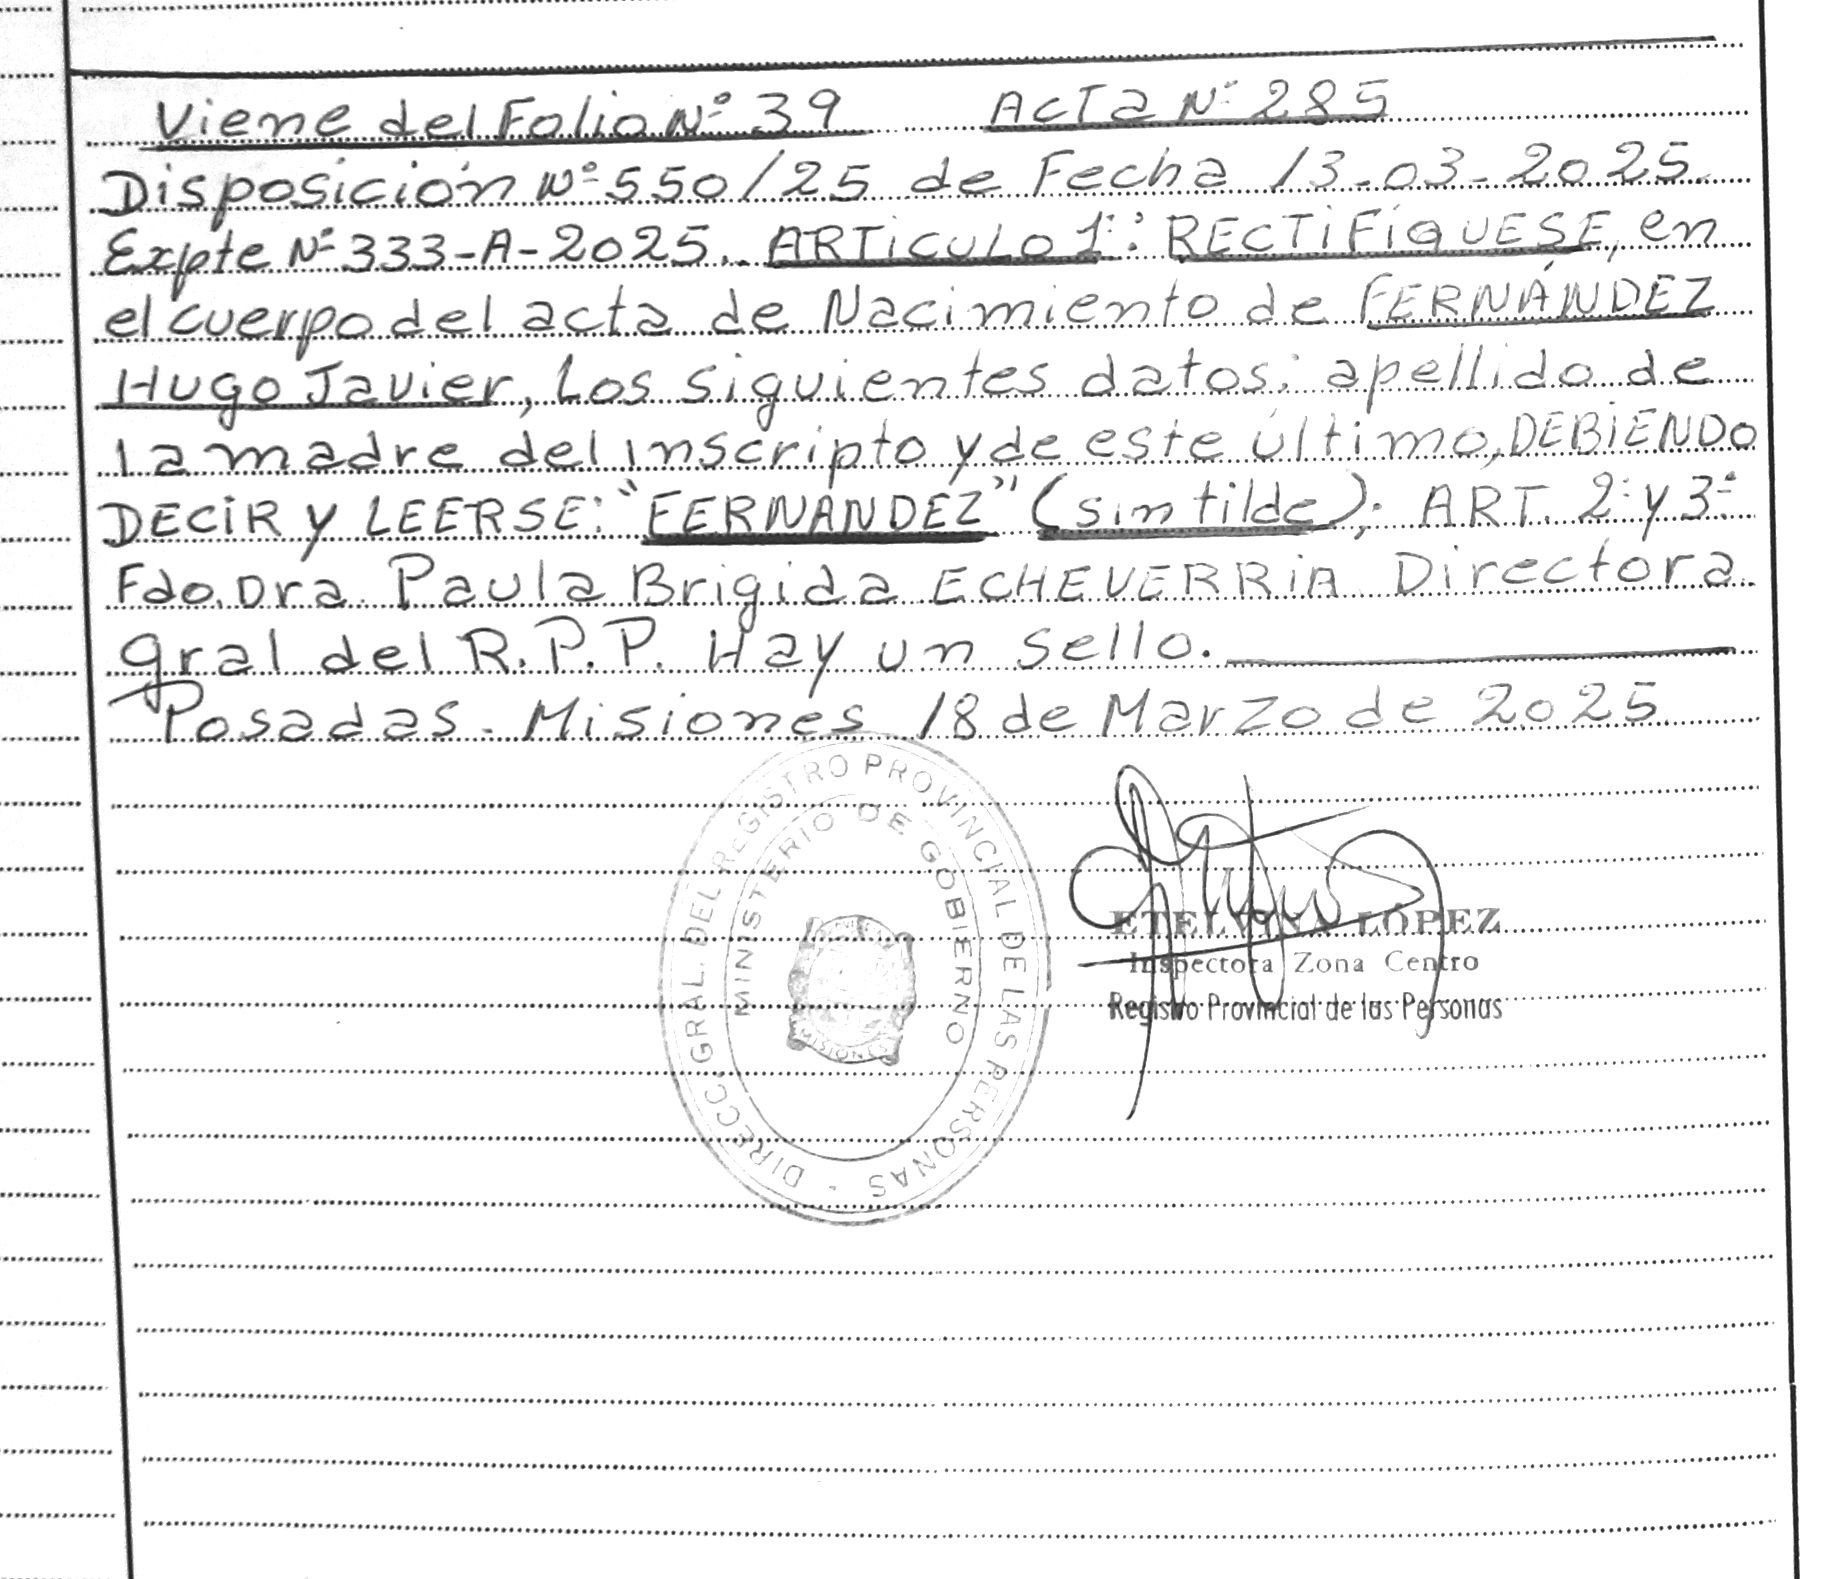 Viene del Folio Nº 39 Acta Nº 285
Disposición Nº 550/25 de Fecha 13-03-2025.
Expte Nº 333-A-2025. ARTiCULO 1º: RECTiFiQUESE, en
el cuerpo del acta de Nacimiento de FERNÁNDEZ
Hugo Javier, Los siguientes datos: apellido de
la madre del inscripto y de este último, DEBiENDO
DECiR y LEERSE: "FERNANDEZ" (sin tilde); ART. 2º y 3º
Fdo. Dra. Paula Brigida ECHEVERRiA Directora
gral del R.P.P. Hay un sello.
Posadas - Misiones 18 de Marzo de 2025
DIRECC. GRAL. DEL REGISTRO PROVINCIAL DE LAS PERSONAS -
MINISTERIO DE GOBIERNO
MISIONES
ETELVINA LOPEZ
Inspectora Zona Centro
Registro Provincial de las Personas